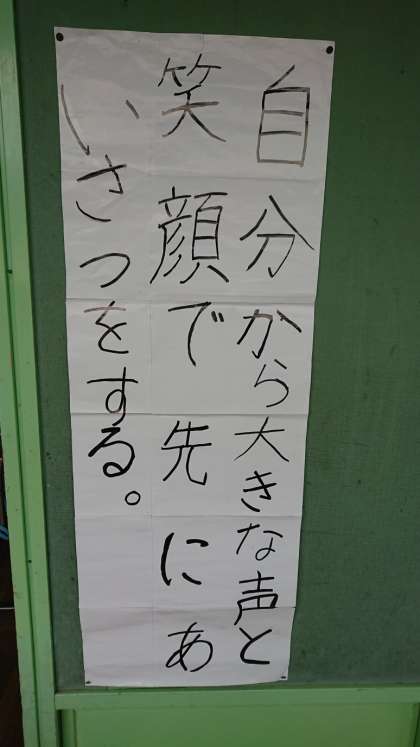 自分から大きな声と
笑顔で先にあ
いさつをする。